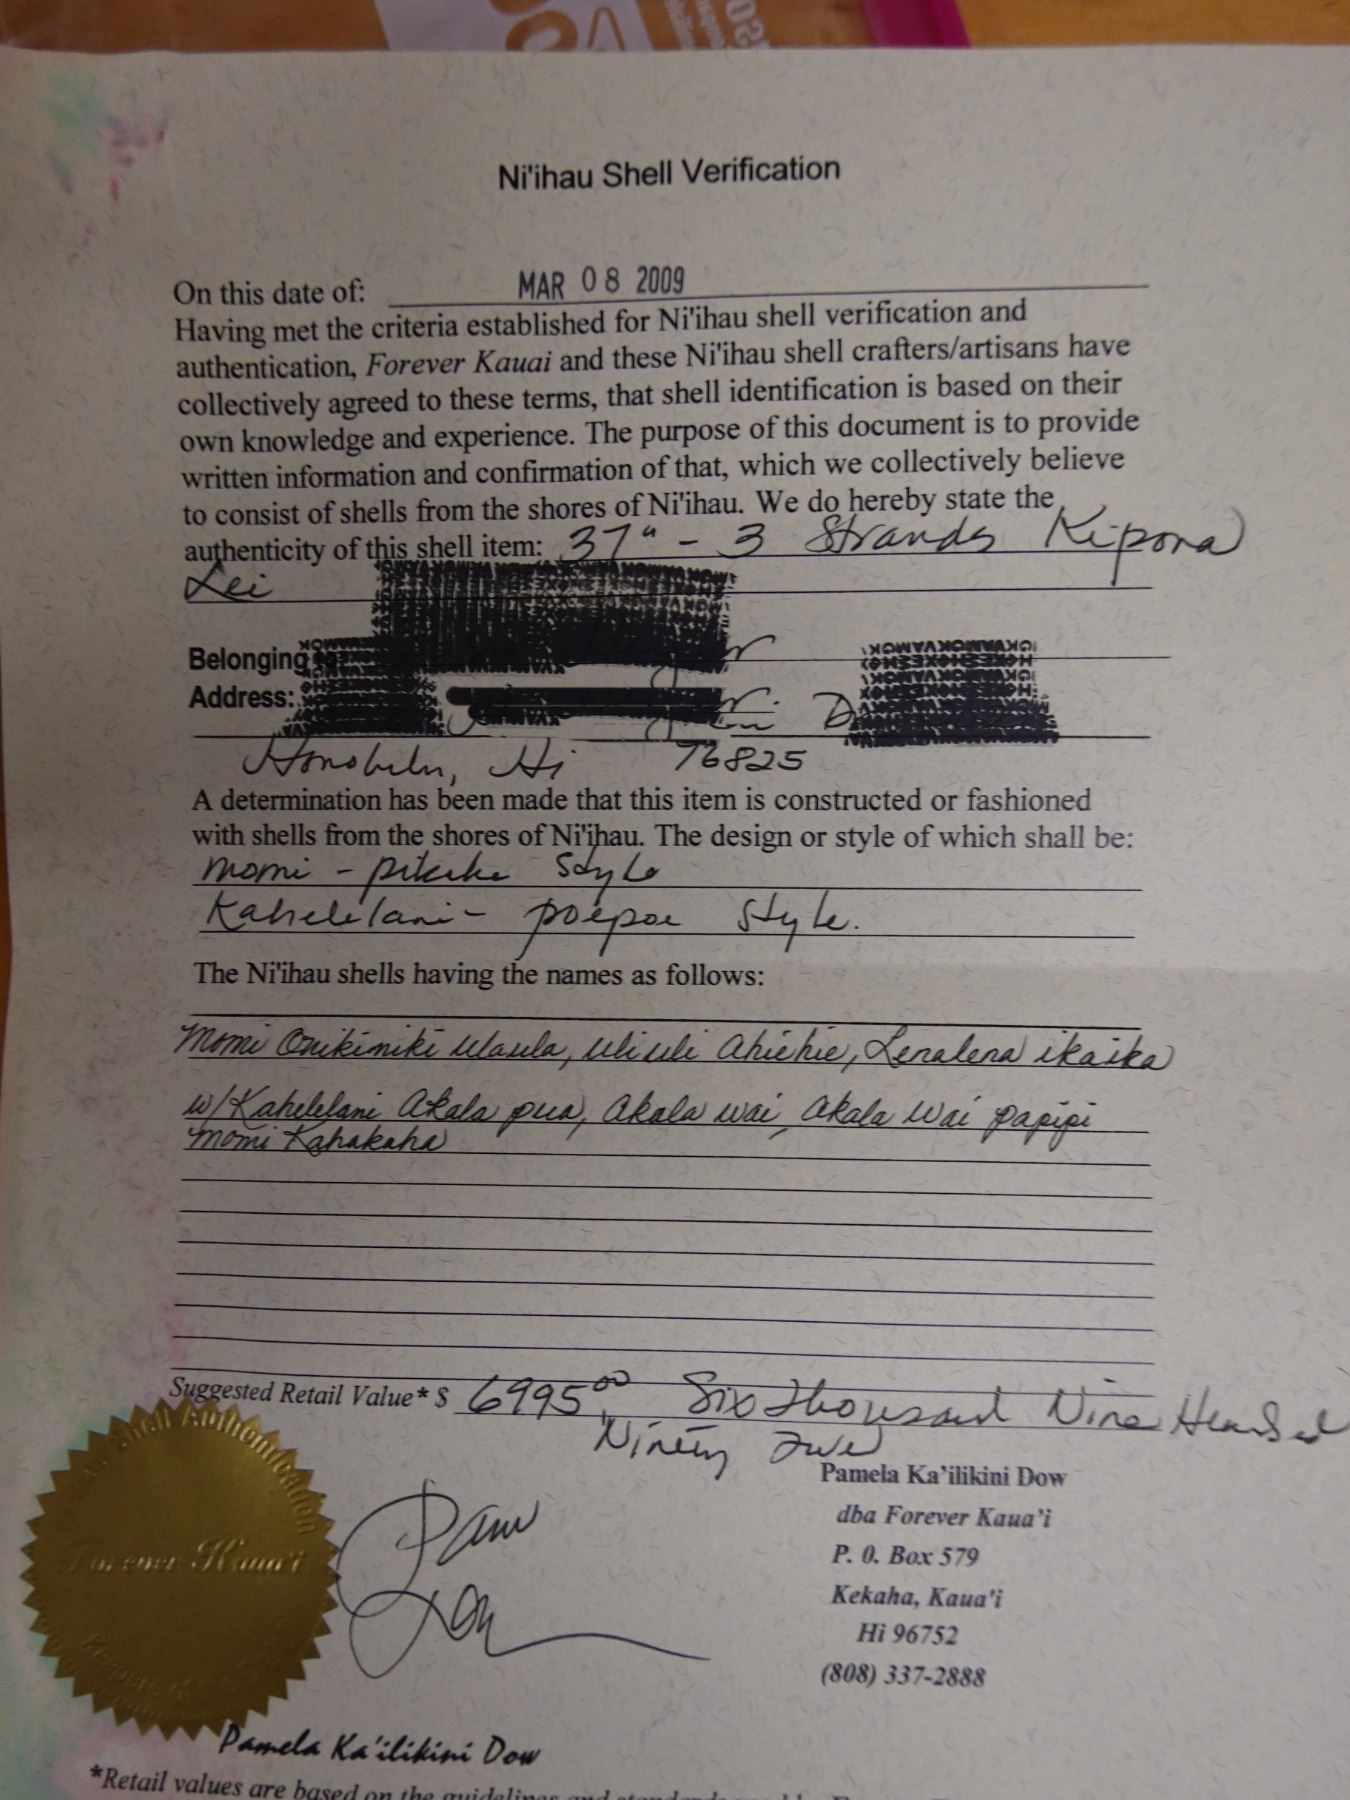 Ni'ihau Shell Verification
On this date of: MAR 08 2009
Having met the criteria established for Ni'ihau shell verification and
authentication, Forever Kauai and these Ni'ihau shell crafters/artisans have
collectively agreed to these terms, that shell identification is based on their
own knowledge and experience. The purpose of this document is to provide
written information and confirmation of that, which we collectively believe
to consist of shells from the shores of Ni'ihau. We do hereby state the
authenticity of this shell item: 37" - 3 Strands Kipona
Lei
Belonging
Address:
Honolulu, Hi 96825
A determination has been made that this item is constructed or fashioned
with shells from the shores of Ni'ihau. The design or style of which shall be:
Momi - pikake Style
Kahelelani - poepoe Style.
The Ni'ihau shells having the names as follows:
Momi Onikiniki ulaula, uliuli Ahiehie, Lenalena ikaika
w/ Kahelelani Akala pua, Akala wai, Akala Wai papipi
Momi Kahakaha
Suggested Retail Value* $ 6995.00 Six Thousand Nine Hundred
Ninety Five
Pamela Ka'ilikini Dow
dba Forever Kaua'i
P. O. Box 579
Kekaha, Kaua'i
Hi 96752
(808) 337-2888
Shell Authentication
Forever Kaua'i
Pam Dow
Pamela Ka'ilikini Dow
*Retail values are based on the guidelines and